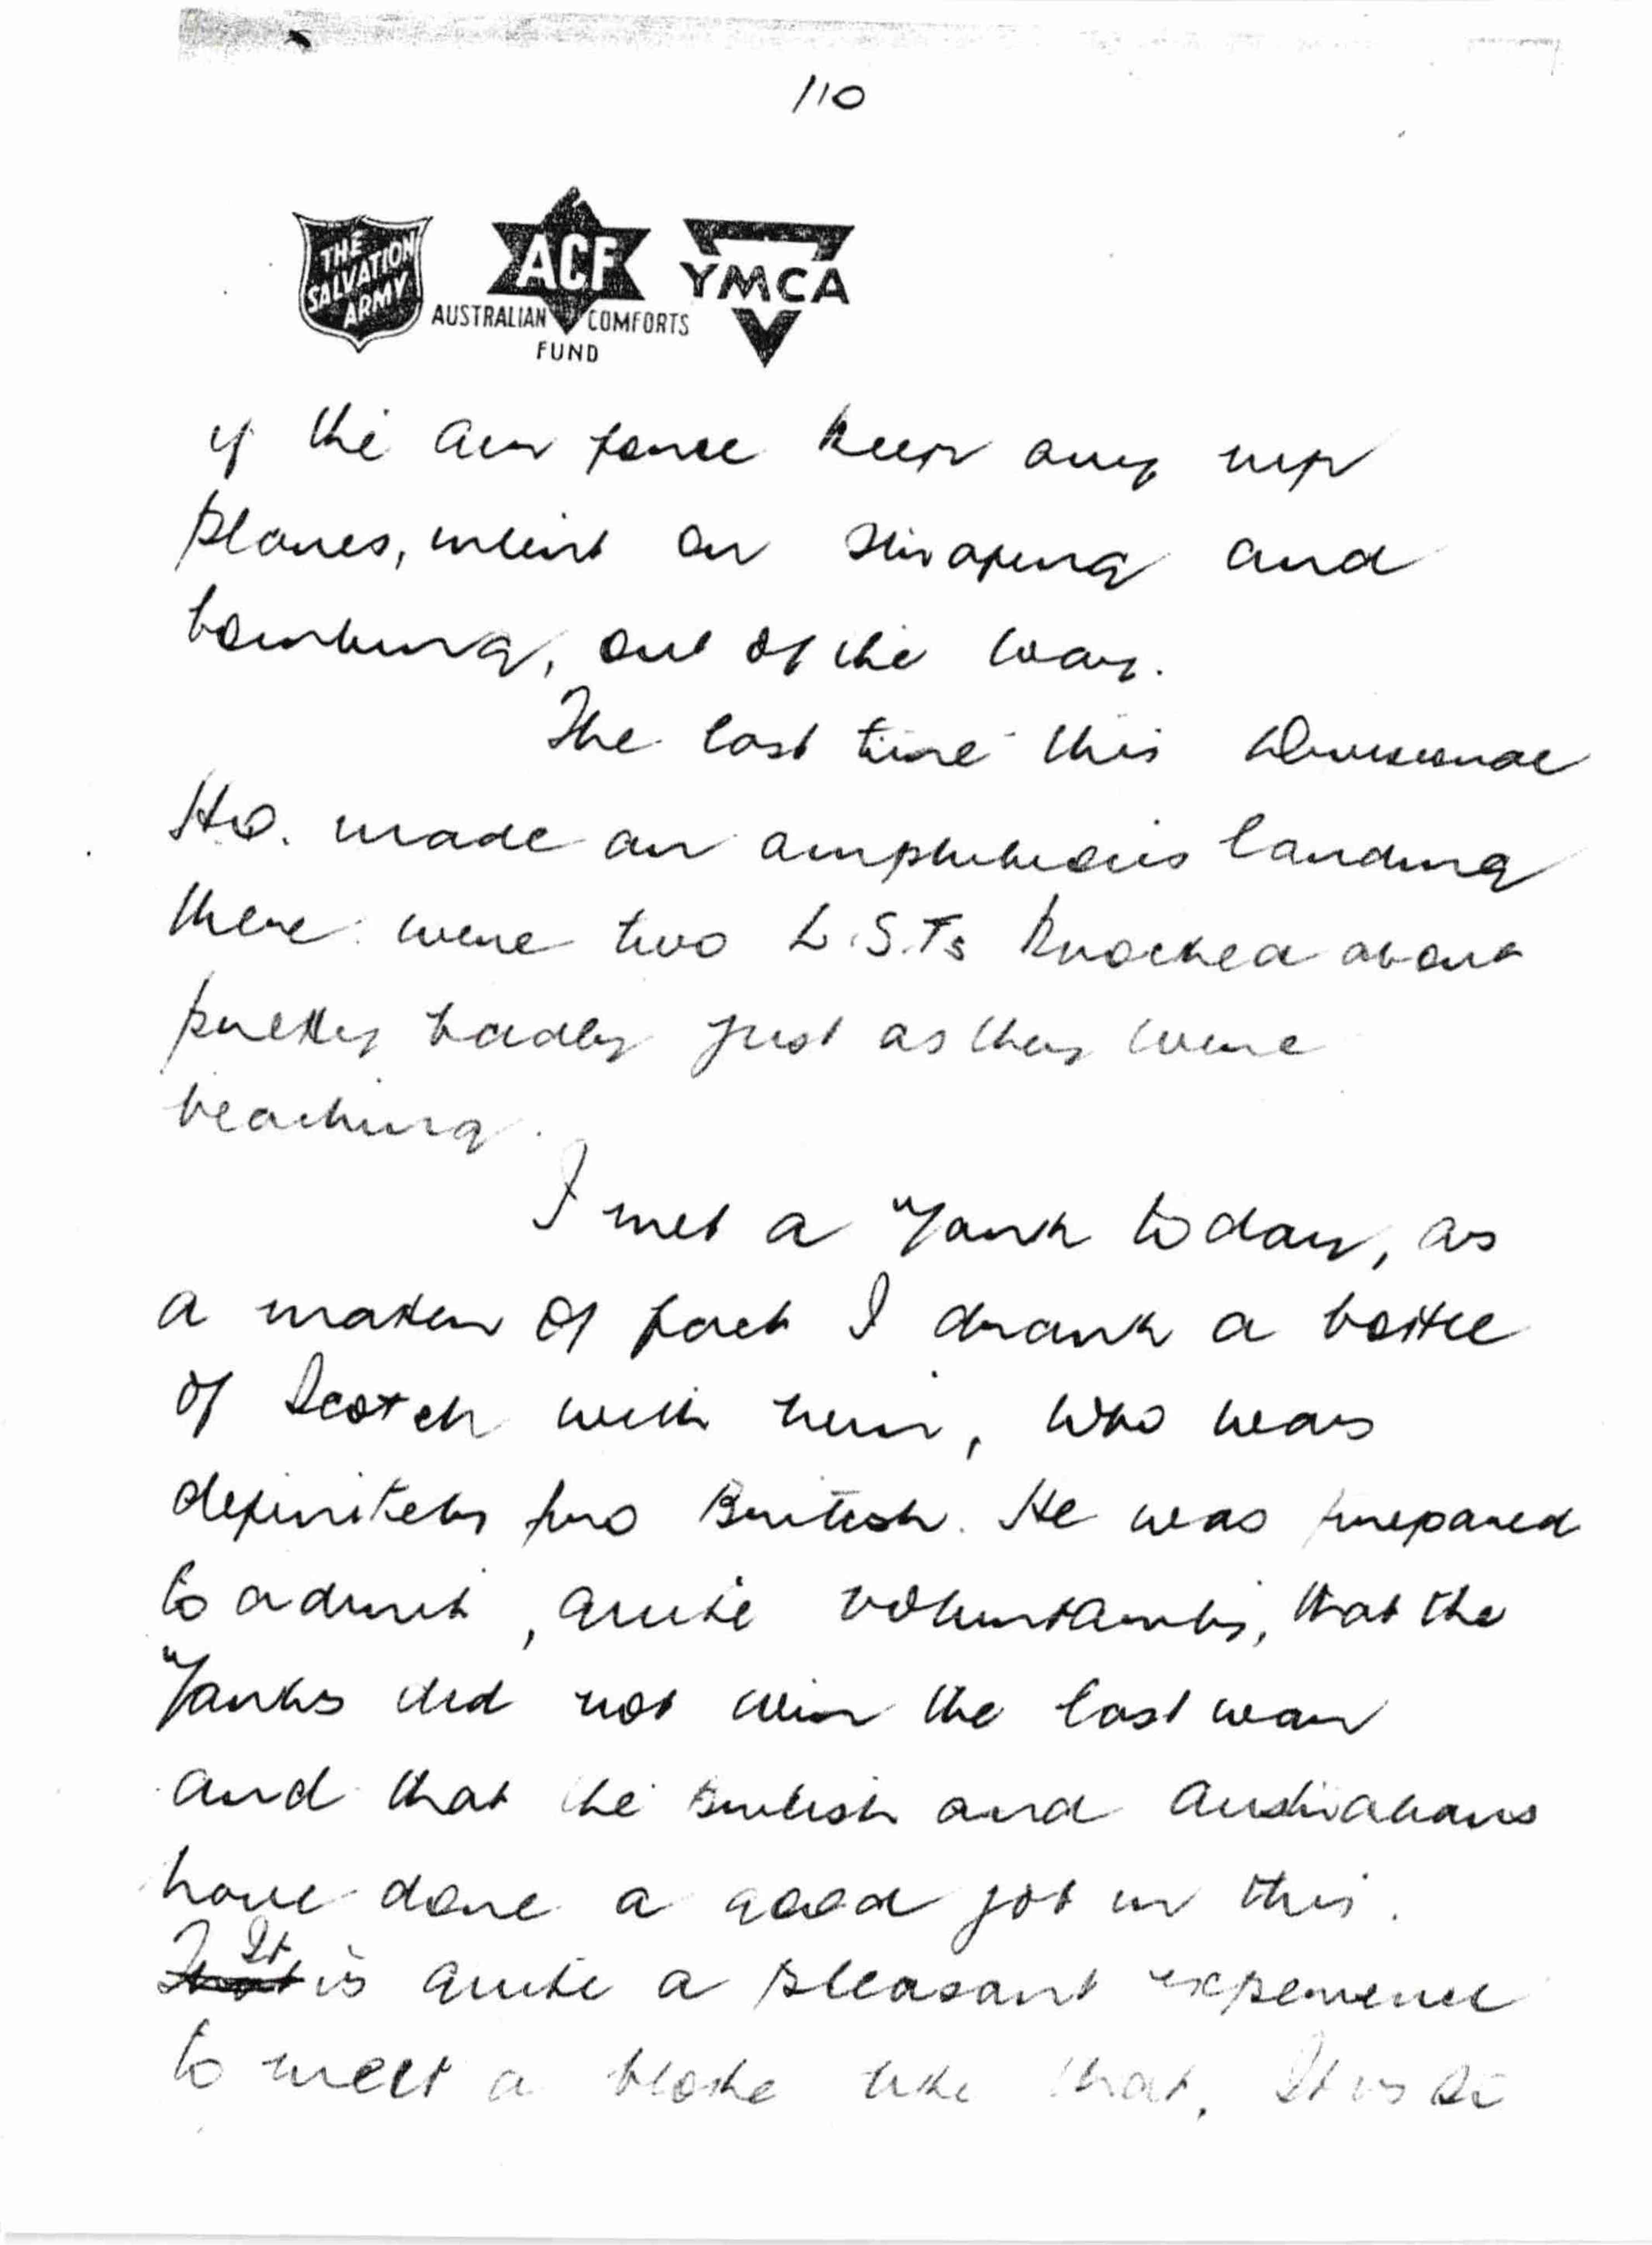 110
THE
SALVATION
ARMY
ACF
AUSTRALIAN COMFORTS
FUND
YMCA
if the air force keep any nip
planes, intent on strafing and
bombing, out of the way.
The last time this Divisional
HQ. made an amphibious landing
there were two L.S.Ts knocked about
pretty badly just as they were
beaching.
I met a Yank today, as
a matter of fact I drank a bottle
of Scotch with him, who was
definitely pro British. He was prepared
to admit, quite voluntarily, that the
Yanks did not win the last war
and that the British and Australians
have done a good job in this.
That It is quite a pleasant experience
to meet a bloke like that. It is so